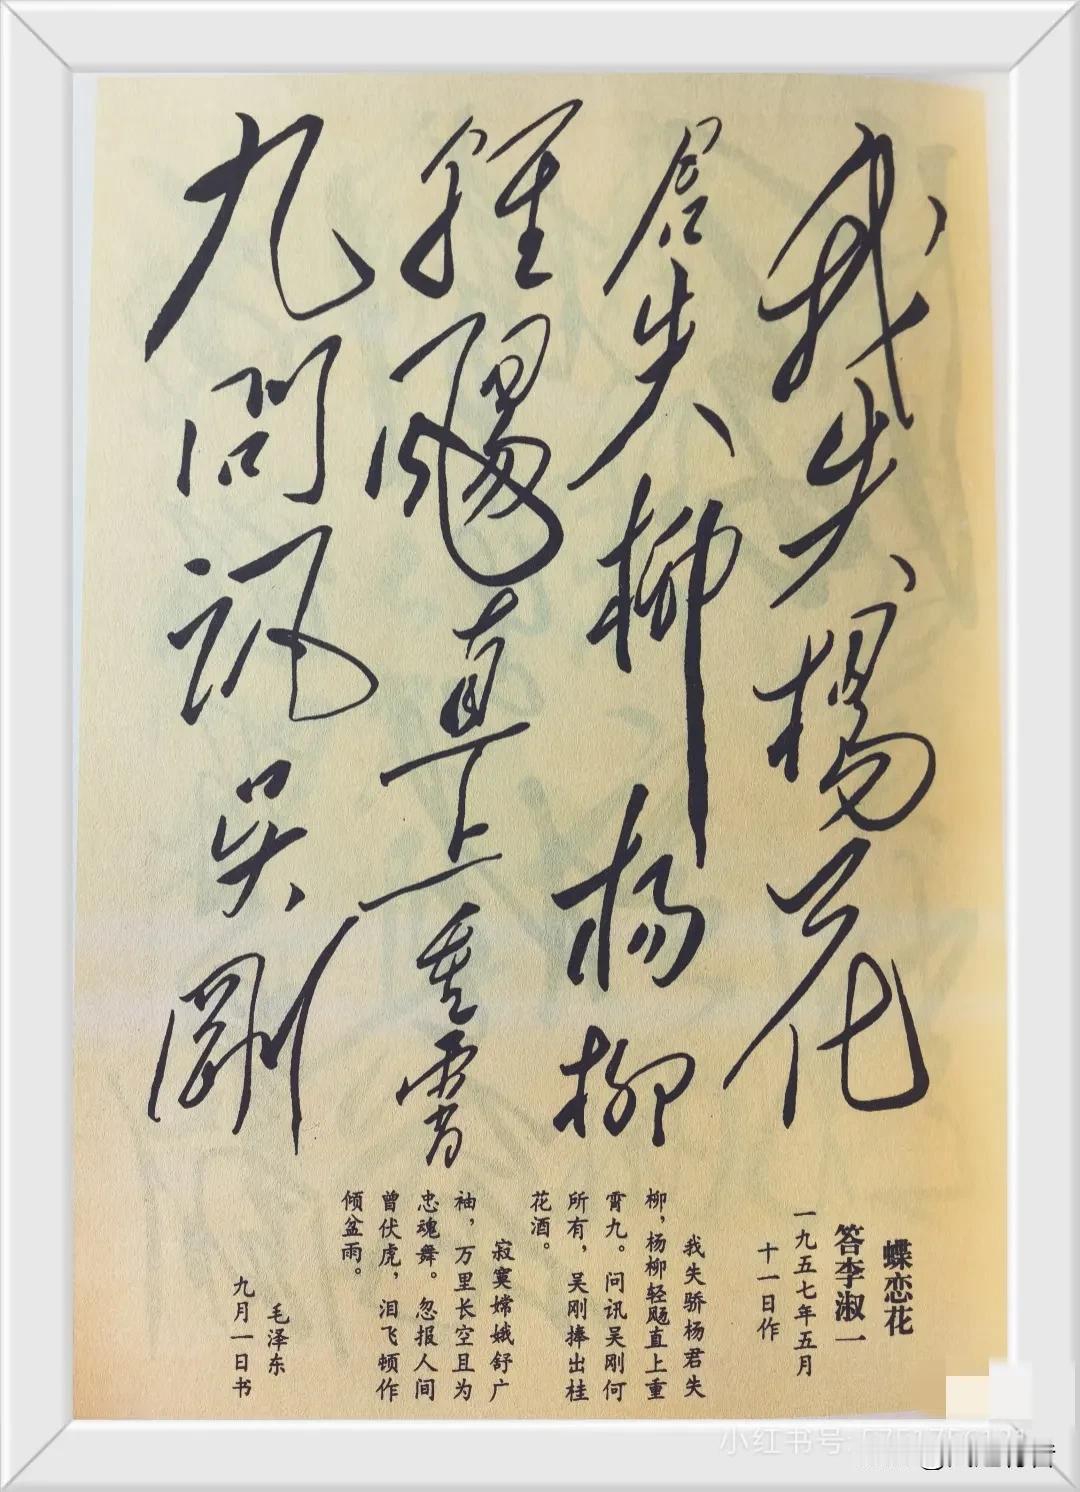 我失楊花
君失柳杨柳
輕颺直上重霄
九問訊吴剛
蝶恋花
答李淑一
一九五七年五月
十一日作
我失骄杨君失
柳，杨柳轻飏直上重
霄九。问讯吴刚何
所有，吴刚捧出桂
花酒。
寂寞嫦娥舒广
袖，万里长空且为
忠魂舞。忽报人间
曾伏虎，泪飞顿作
倾盆雨。
毛泽东
九月一日书
小红书号: